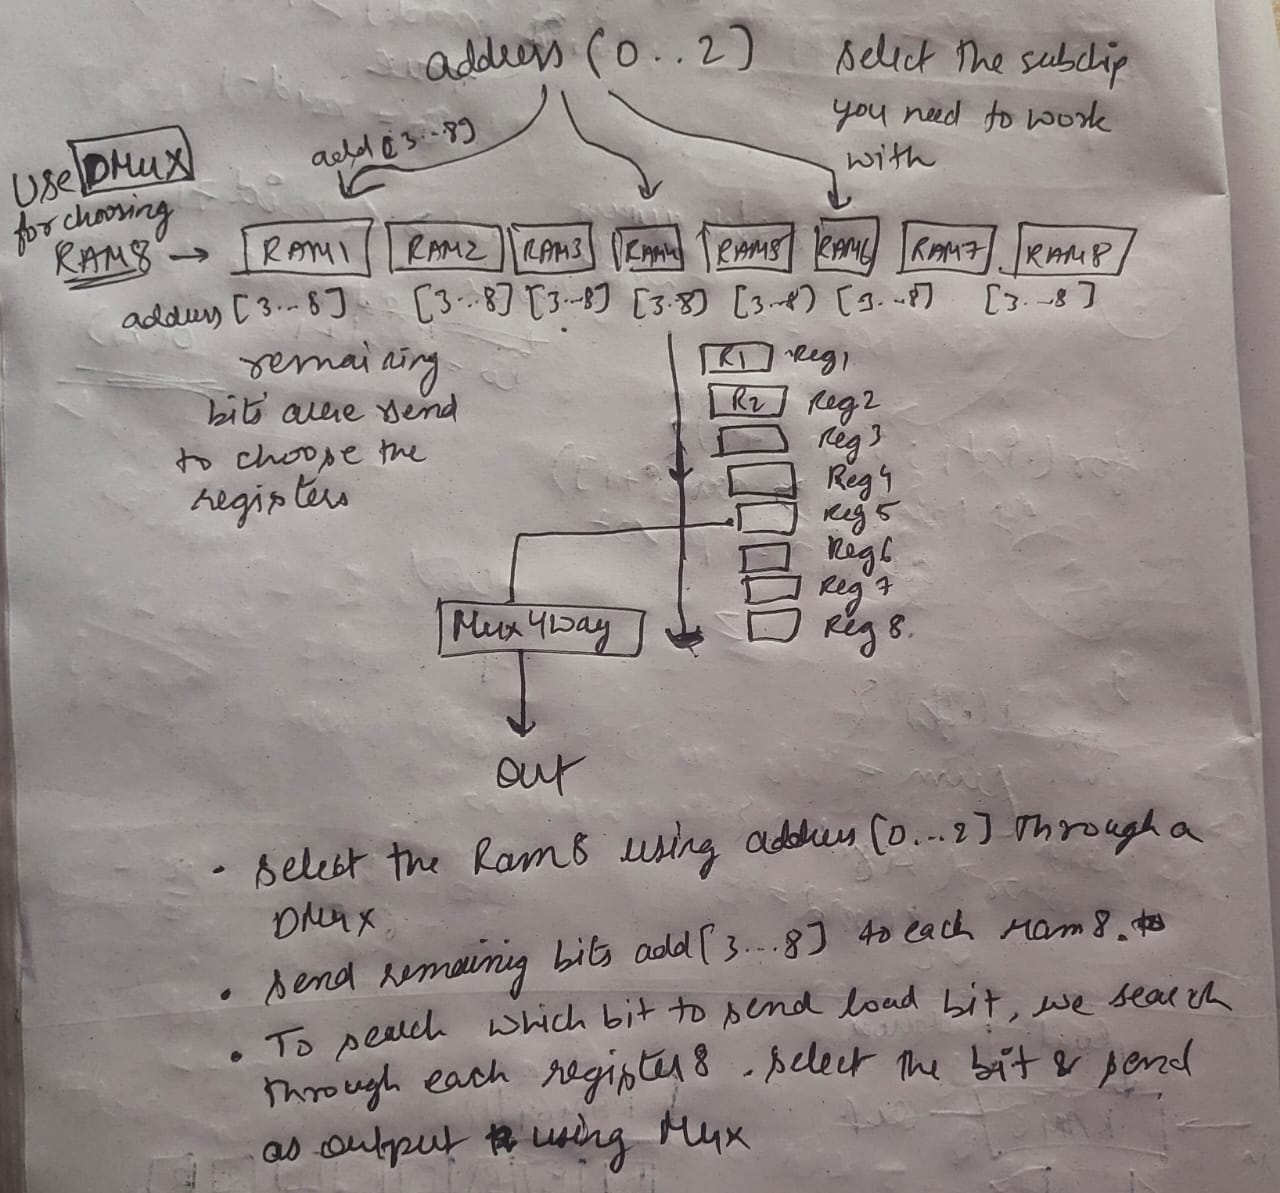 address (0..2]
select the subchip
you need to work
with
add[3..8]
Use DMux
for choosing
RAM8 →
RAM1 RAM2 RAM3 RAM4 RAM5 RAM6 RAM7 RAM8
address [3...8] [3..8] [3..8] [3.8) [3..8) [3..8) [3..8]
remaining
bits are send
to choose the
registers
R1 Reg1
R2 Reg2
Reg3
Reg4
Reg5
Reg6
Reg7
Reg 8.
Mux4way
out
• select the Ram8 using address (0...2] through a
DMux.
• send remainig bits add[3...8] to each ram8.
• To seach which bit to send load bit, we search
through each register8. select the bit & send
as output using Mux